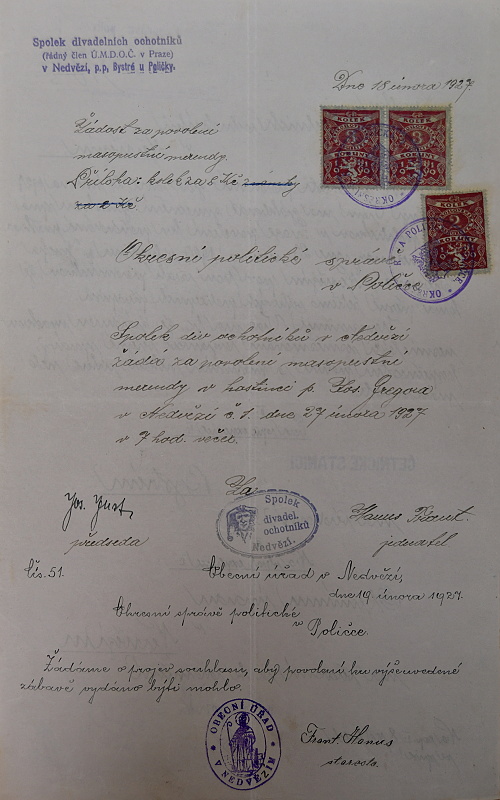 Spolek divadelních ochotníků
(řádný člen Ú.M.D.O.Č. v Praze)
v Nedvězí, p.p. Bystré u Poličky.
Dne 18 února 1927.
Žádost za povolení
masopustní merendy.
Příloha: kolek za 8 Kč známky
za 2 Kč
KOLEK
3
KORUNY
KOLEK
3
KORUNY
KOLEK
2
KORUNY
Okresní politické správě
v Poličce
Spolek div ochotníků v Nedvězí
žádá za povolení masopustní
merendy v hostinci p. Jos. Gregora
v Nedvězí č. 1. dne 27 února 1927
v 7 hod. večer.
Za
Spolek
divadel.
ochotníků
Nedvězí.
Jos.
předseda
Hanus Frant.
jednatel
Čís. 51.
Obecní úřad v Nedvězí,
dne 19 února 1927.
Okresní správě politické
v
Poličce.
Žádáme o projev souhlasu, aby povolení ku výšeuvedené
zábavě vydáno býti mohlo.
OBECNÍ ÚŘAD
V NEDVĚZÍM
Frant. Hanus
starosta.